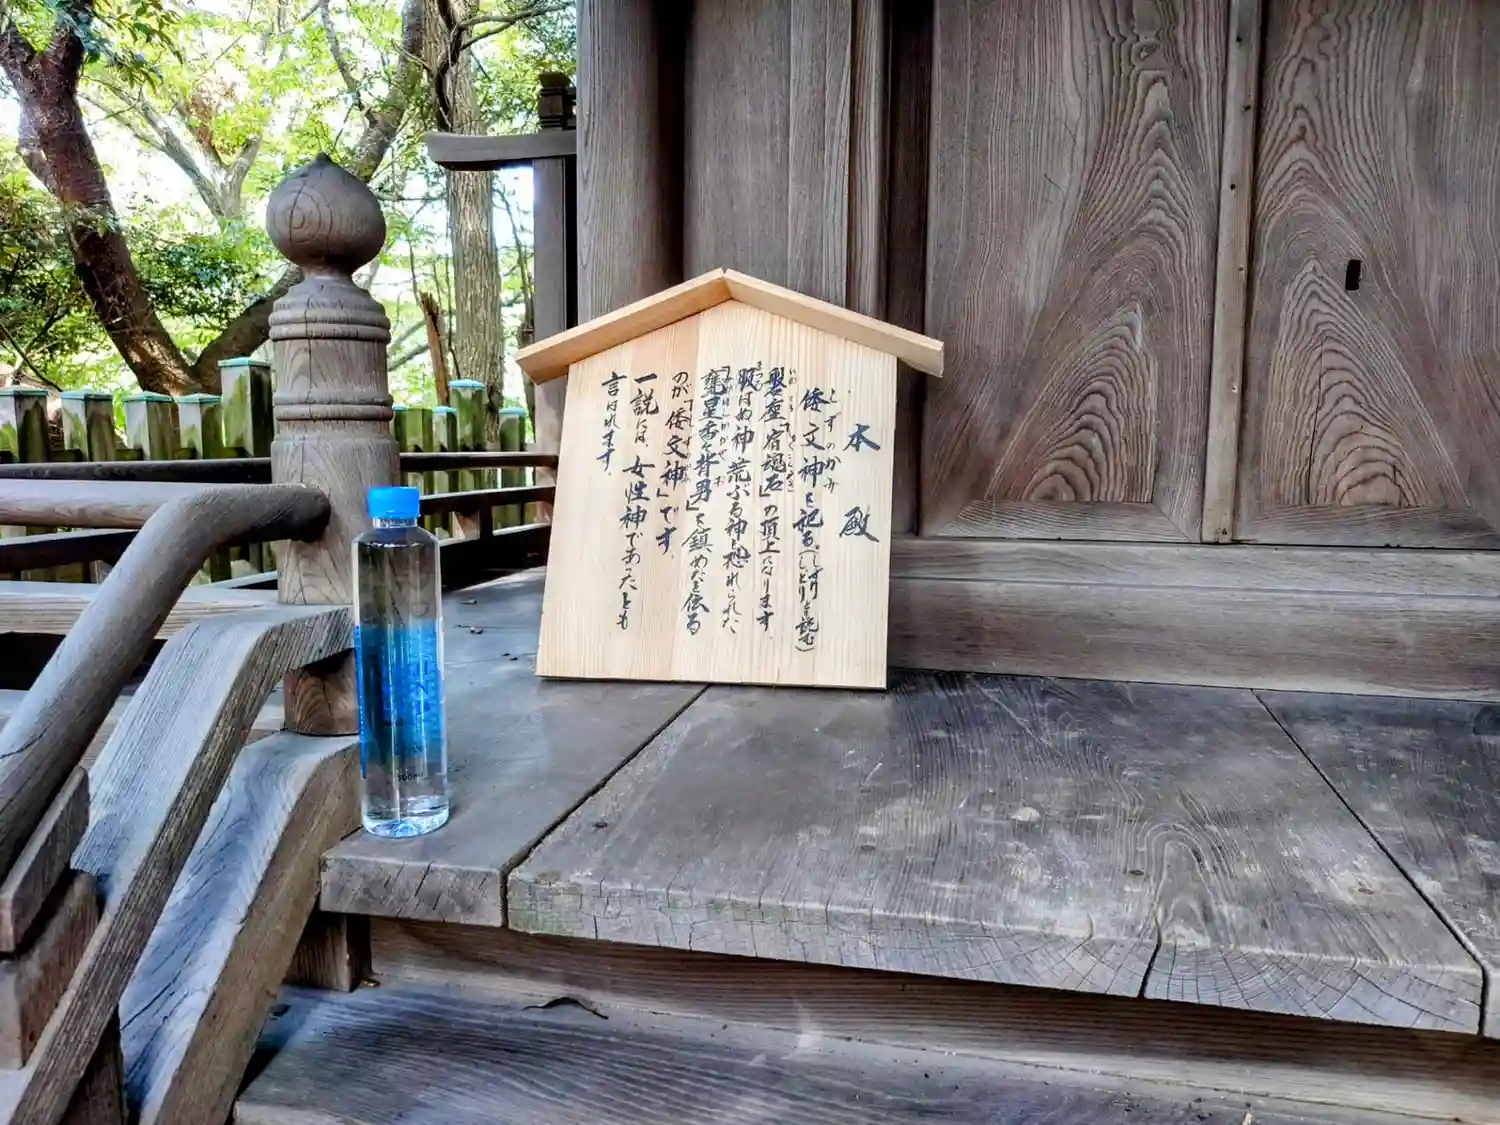 本殿
しずのかみ
倭文神を祀る。(しずり しどりと読む)
磐座「宿魂石」の頂上になります。
服はぬ神 荒ぶる神と恐れられた
「甕星香々背男」を鎮めたと伝る
のが「倭文神」です。
一説には、女性神であったとも
言はれます。
500ml